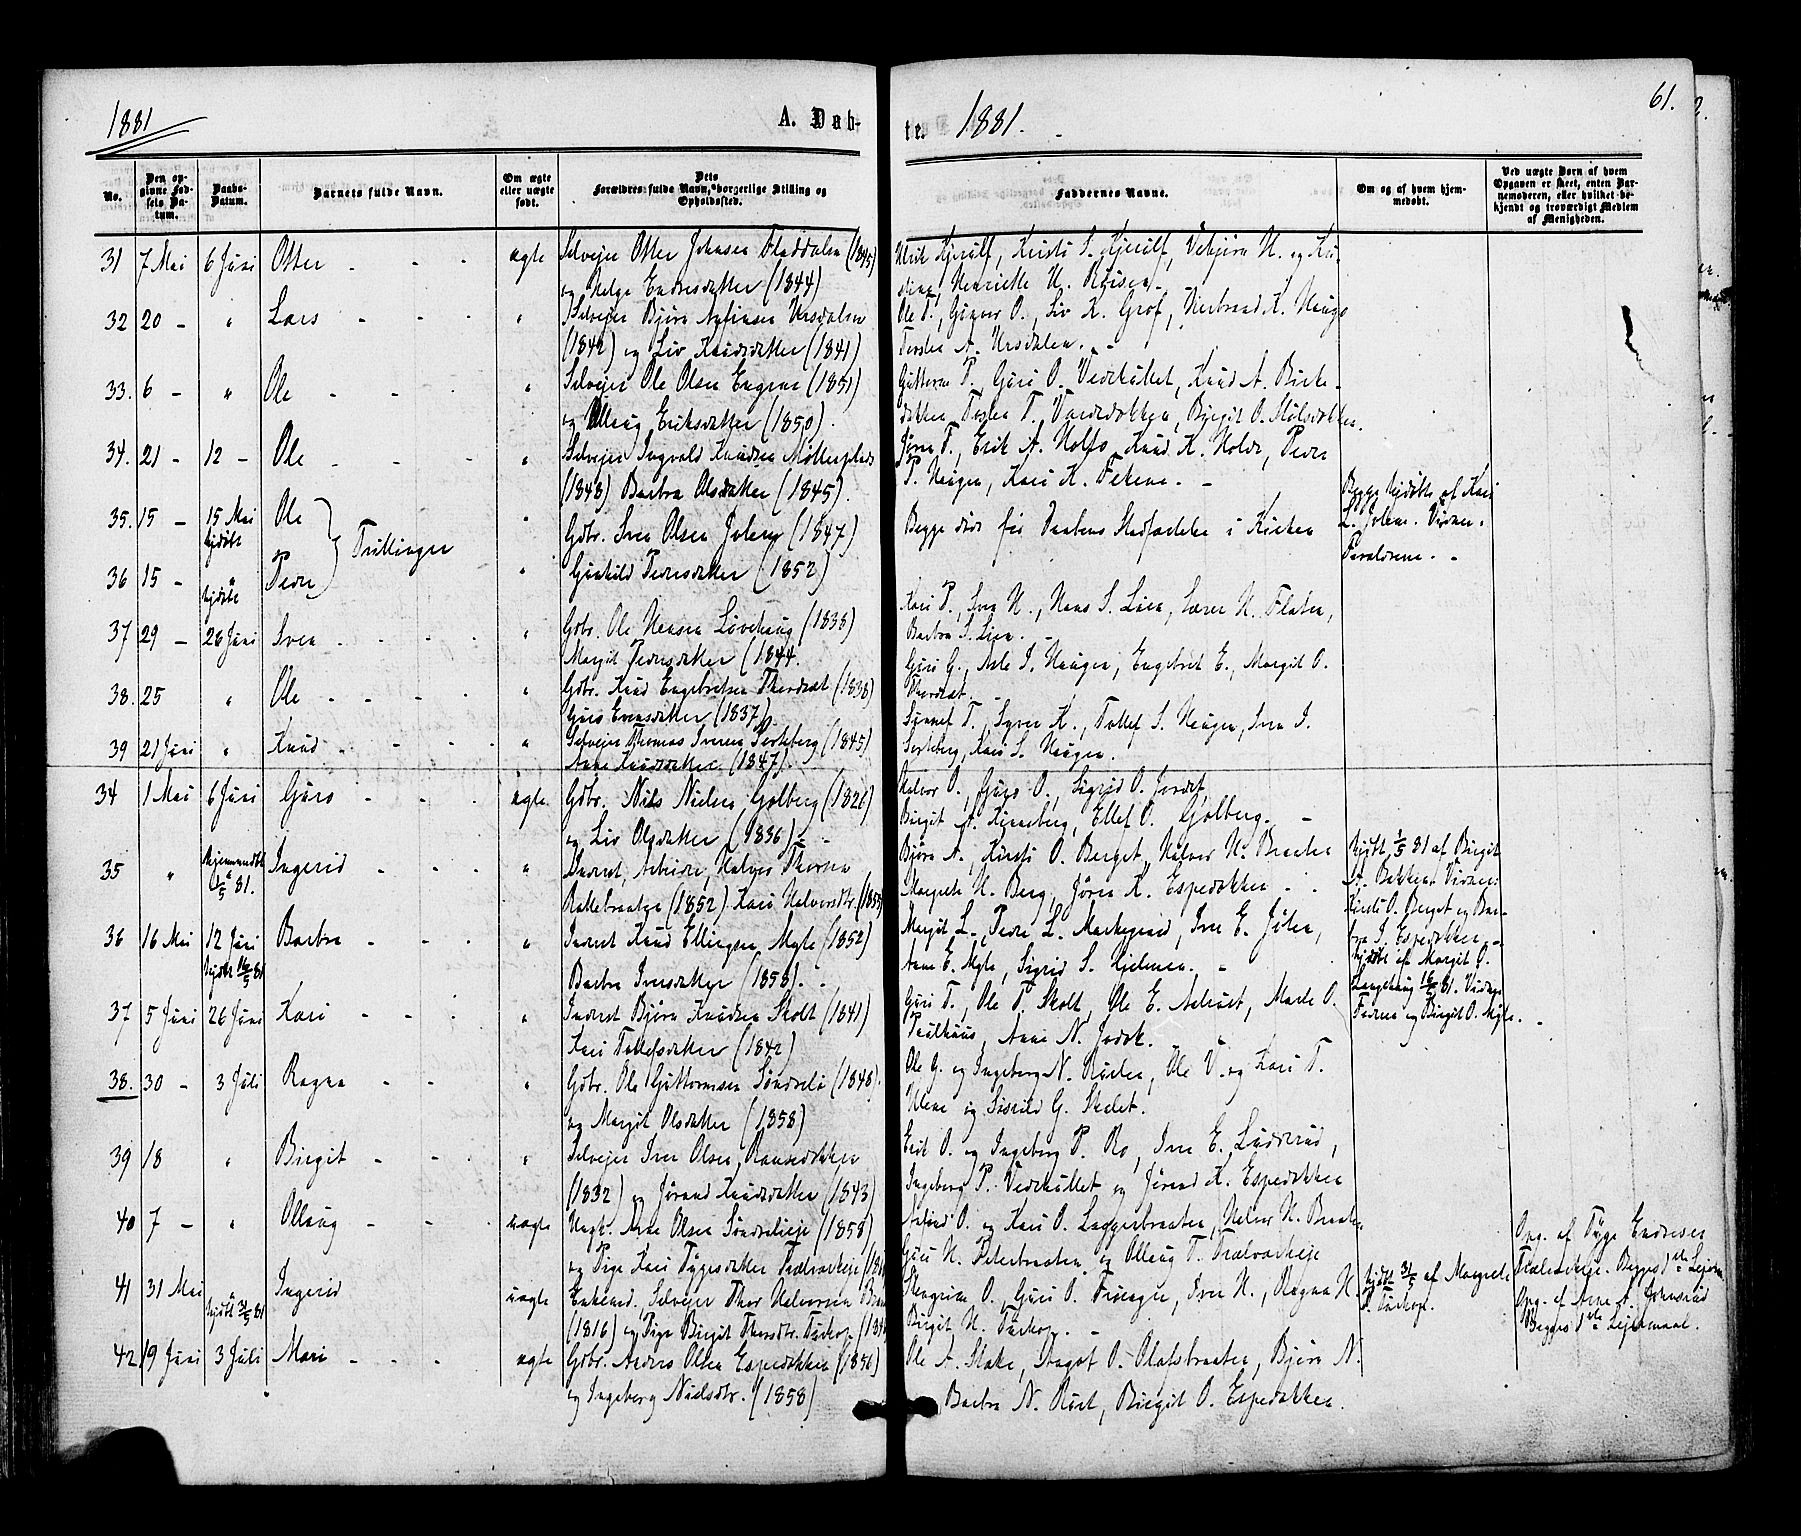 1881
A. Døb-
te. 1881.
61.
No.
Den op-
givne Fød-
sels Da-
tum.
Daabs-
Datum.
Barnets fulde Navn.
Om ægte
eller uægte
født.
Dets
Forældres fulde Navn, borgerlige Stilling og
Opholdssted.
Faddernes Navne.
Om og af hvem hjem-
medøbt.
Ved uægte Børn af hvem
Opgaven er skeet, enten Bar-
nemoderen, eller hvilket be-
kjendt og troværdigt Medlem
af Menigheden.
31 7 Mai 6 Juni Otter - - - ægte Selveier Otter Johnsen (1845)
og Helge Endresdatter (1844)
Ulrik Kjerulf, Kirsti S. Kjerulf, Vebjørn H. og
Henriette H.
32 20 - " Lars - - - " Selveier Bjørn Ursdalen
(1842) og Liv Knudsdatter (1841)
Ole T., Gunvor O., Liv K. Grøf, Herbrand K. Haugo
Torsten A. Ursdalen. -
33. 6 - " Ole - - - " Selveier Ole Olsen Engene (1851)
og Ollaug Eriksdatter (1850).
Guttorm P., Guri O. Vedehullet, Knud A. Birke-
dokken, Torsten T. Birgit O.
34. 21 - 12 - Ole - - - " Selveier Ingvald Knudsen Mølleplads
(1848) Barbra Olsdatter (1845).
Jøran T., Erik A. Holto, Knud K. Holde, Peder
P. Haugen, Kari K. -
35. 15 - 15 Mai hjdøbt Ole
Trillinger
" Gbr. Sven Olsen (1847)
Begge døde før Daabens Stadfæstelse i Kirken
Begge hjdøbte af Kari
L. Vidner:
Forældrene. -
36 15 - " hjdøbt Peder " Gunhild Pedersdatter (1852)
37 29 - 26 Juni Sven - - - " Gbr. Ole Hansen Løvehaug (1838)
Margit Pedersdatter (1844.
Kari P., Sven H., Hans S. Lien, H. Flaten,
Barbra S. Lien. -
38. 25 " Ole - - - " Gbr. Knud Engebretsen Thordset (1838)
Guri Evensdatter (1837).
Guri G., Asle I. Haugen, Engebret E., Margit O.
Thordset. -
39 21 Juni " Knud - - - " Selveier Thomas Iversen Sorteberg (1845)
Anne Knudsdatter (1847).
Sunnef T., Syver K., Tollef S. Haugen, Iver I.
Sorteberg, Kari S. Haugen.
34 1 Mai 6 Juni Guro - - - ægte Gbr. Nils Nielsen Golberg (1826)
og Liv Olsdatter (1836) -
Halvor O., Guro O., Sigrid O. Jordet,
Birgit A. Kinneberg, Ellef O. Golberg. -
35 " Hjemmedøbt 1/5 81. Ingerid - - - " Inderst, Arbeider, Halvor Thorsen
(1852) Kari Halvorsdtr. (1855)
Bjørn A., Kirsti O. Berget, Halvor H. Braaten
Margrete H. Berg, Jøran K. Espedokken - -
Hjdøbt 1/5 81 af Birgit
A. Bakken. Vidner:
Kirsti O. Berget og Bar-
bra S. Espedokken. -
36 16 Mai 12 Juni Hjdøbt 16/5 81 Barbra - - " Inderst Knud Ellingsen Myle (1852)
Barbra Iversdatter (1858). -
Margit L., Peder L. Markegaard, Iver E.
Anne E. Myle, Sigrid S. Hjelmen. -
Hjdøbt af Margit O.
Langehaug 16/5 81. Vidner
Faderen og Birgit O. Myle. -
37 5 Juni 26 Juni Kari - - - " Inderst Bjørn Knudsen Skolt (1841)
Kari Tollefsdatter (1842)
Guri T., Ole T. Skolt, Ole E. Marte O.
Anne N.
38. 30 - 3 Juli Ragna - - " Gbr. Ole Guttormsen Søndreli (1848).
og Margit Olsdatter (1858)
Ole G. og Ingeborg N. Ole V. og Kari T.
og G.
39 18 " Birgit - - - " Selveier Iver Olsen
(1832) og Jørand Knudsdatter (1843)
Erik O. og Ingeborg P. Ro, Iver E.
Ingeborg P. Vedehullet og Jørand K. Espedokken
40 7 - " Ollaug - - - uægte Ungk. Arne Olsen (1858)
og Pige Kari Tygesdatter
Arfind O. og Kari O. Laggerbraaten, Halvor H. Braaten
Guri H. og Ollaug T.
Opg. af Tyge Endresen
Begges 1ste Leierm.
41 31 Mai " Hjdøbt 31/5 81 Ingerid uægte Enkemd., Selveier Thor Halvorsen
(1816) og Pige Birgit Thorsdtr.
Steingrim O., Guri O. Iver H., Ragna H.
Birgit H. -
Hjdøbt 31/5 af Margrete
Opg. af Arne A.
Begges 1ste Leiermaal.
42 19 Juni 3 Juli Mari - - - ægte Gbr. Anders Olsen Espedokken (1850)
og Ingeborg Nielsdtr. (1858)
Ole A. Stake, Aagot O. Olafsbraaten, Bjørn N.
Barbra N. Birgit O. Espedokken.